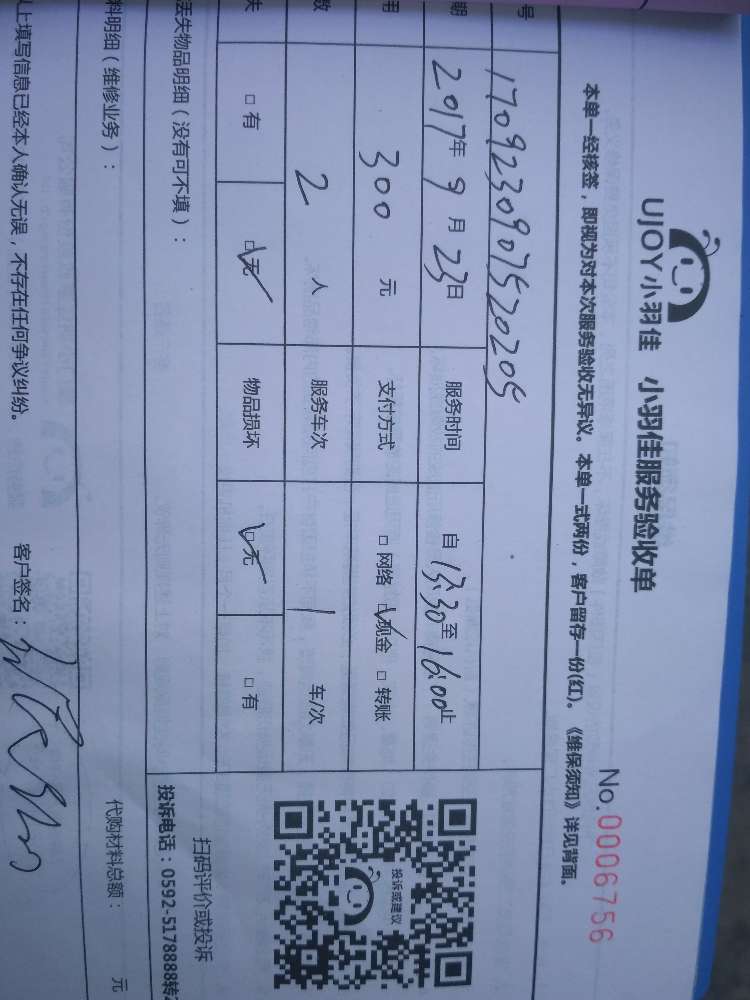 UJOY小羽佳 小羽佳服务验收单
No.0006756
本单一经核签，即视为对本次服务验收无异议。本单一式两份，客户留存一份(红)。《维保须知》详见背面。
号 1709230907520205
期 2017年 9 月 23日 服务时间 自 13:30至 16:00止
用 300 元 支付方式 □ 网络 □现金 □ 转账
数 2 人 服务车次 1 车/次
失 □ 有 □无 物品损坏 □无 □ 有
丢失物品明细（没有可不填）：
料明细（维修业务）：
代购材料总额： 元
以上填写信息已经本人确认无误，不存在任何争议纠纷。 客户签名：
投诉或建议
扫码评价或投诉
投诉电话：0592-5178888转